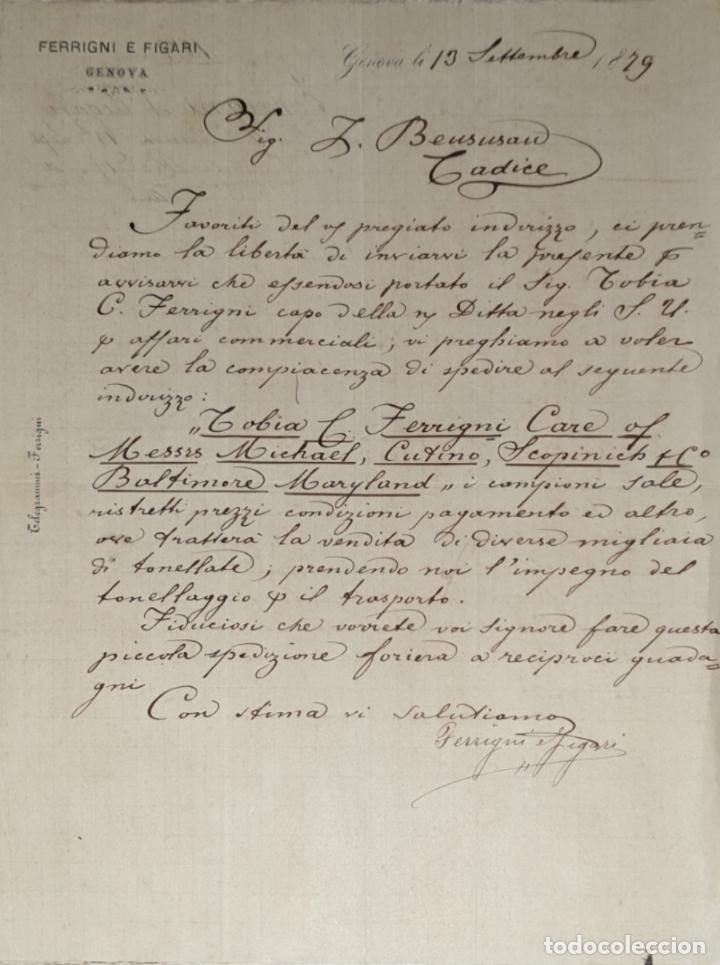 FERRIGNI E FIGARI
GENOVA
Genova li 13 Settembre 1879
Sig. J. Bensusan
Cadice
Favoriti del vs pregiato indirizzo, ci pren=
diamo la libertà di inviarvi la presente p
avvisarvi che essendosi portato il Sig. Tobia
C. Ferrigni capo della ns Ditta negli S. U.
p affari commerciali; vi preghiamo a voler
avere la compiacenza di spedire al seguente
indirizzo:
„Tobia C. Ferrigni Care of
Messrs Michael, Cutino, Scopinich & Co
Baltimore Maryland„ i campioni sale,
ristretti prezzi condizioni pagamento ed altro,
ove tratterà la vendita di diverse migliaia
di tonellate; prendendo noi l'impegno del
tonellaggio p il trasporto.
Fiduciosi che vorrete voi Signore fare questa
piccola spedizione foriera a reciproci guada=
gni
Con stima vi salutiamo
Ferrigni e Figari
Telegrammi - Ferrigni
todocoleccion.net